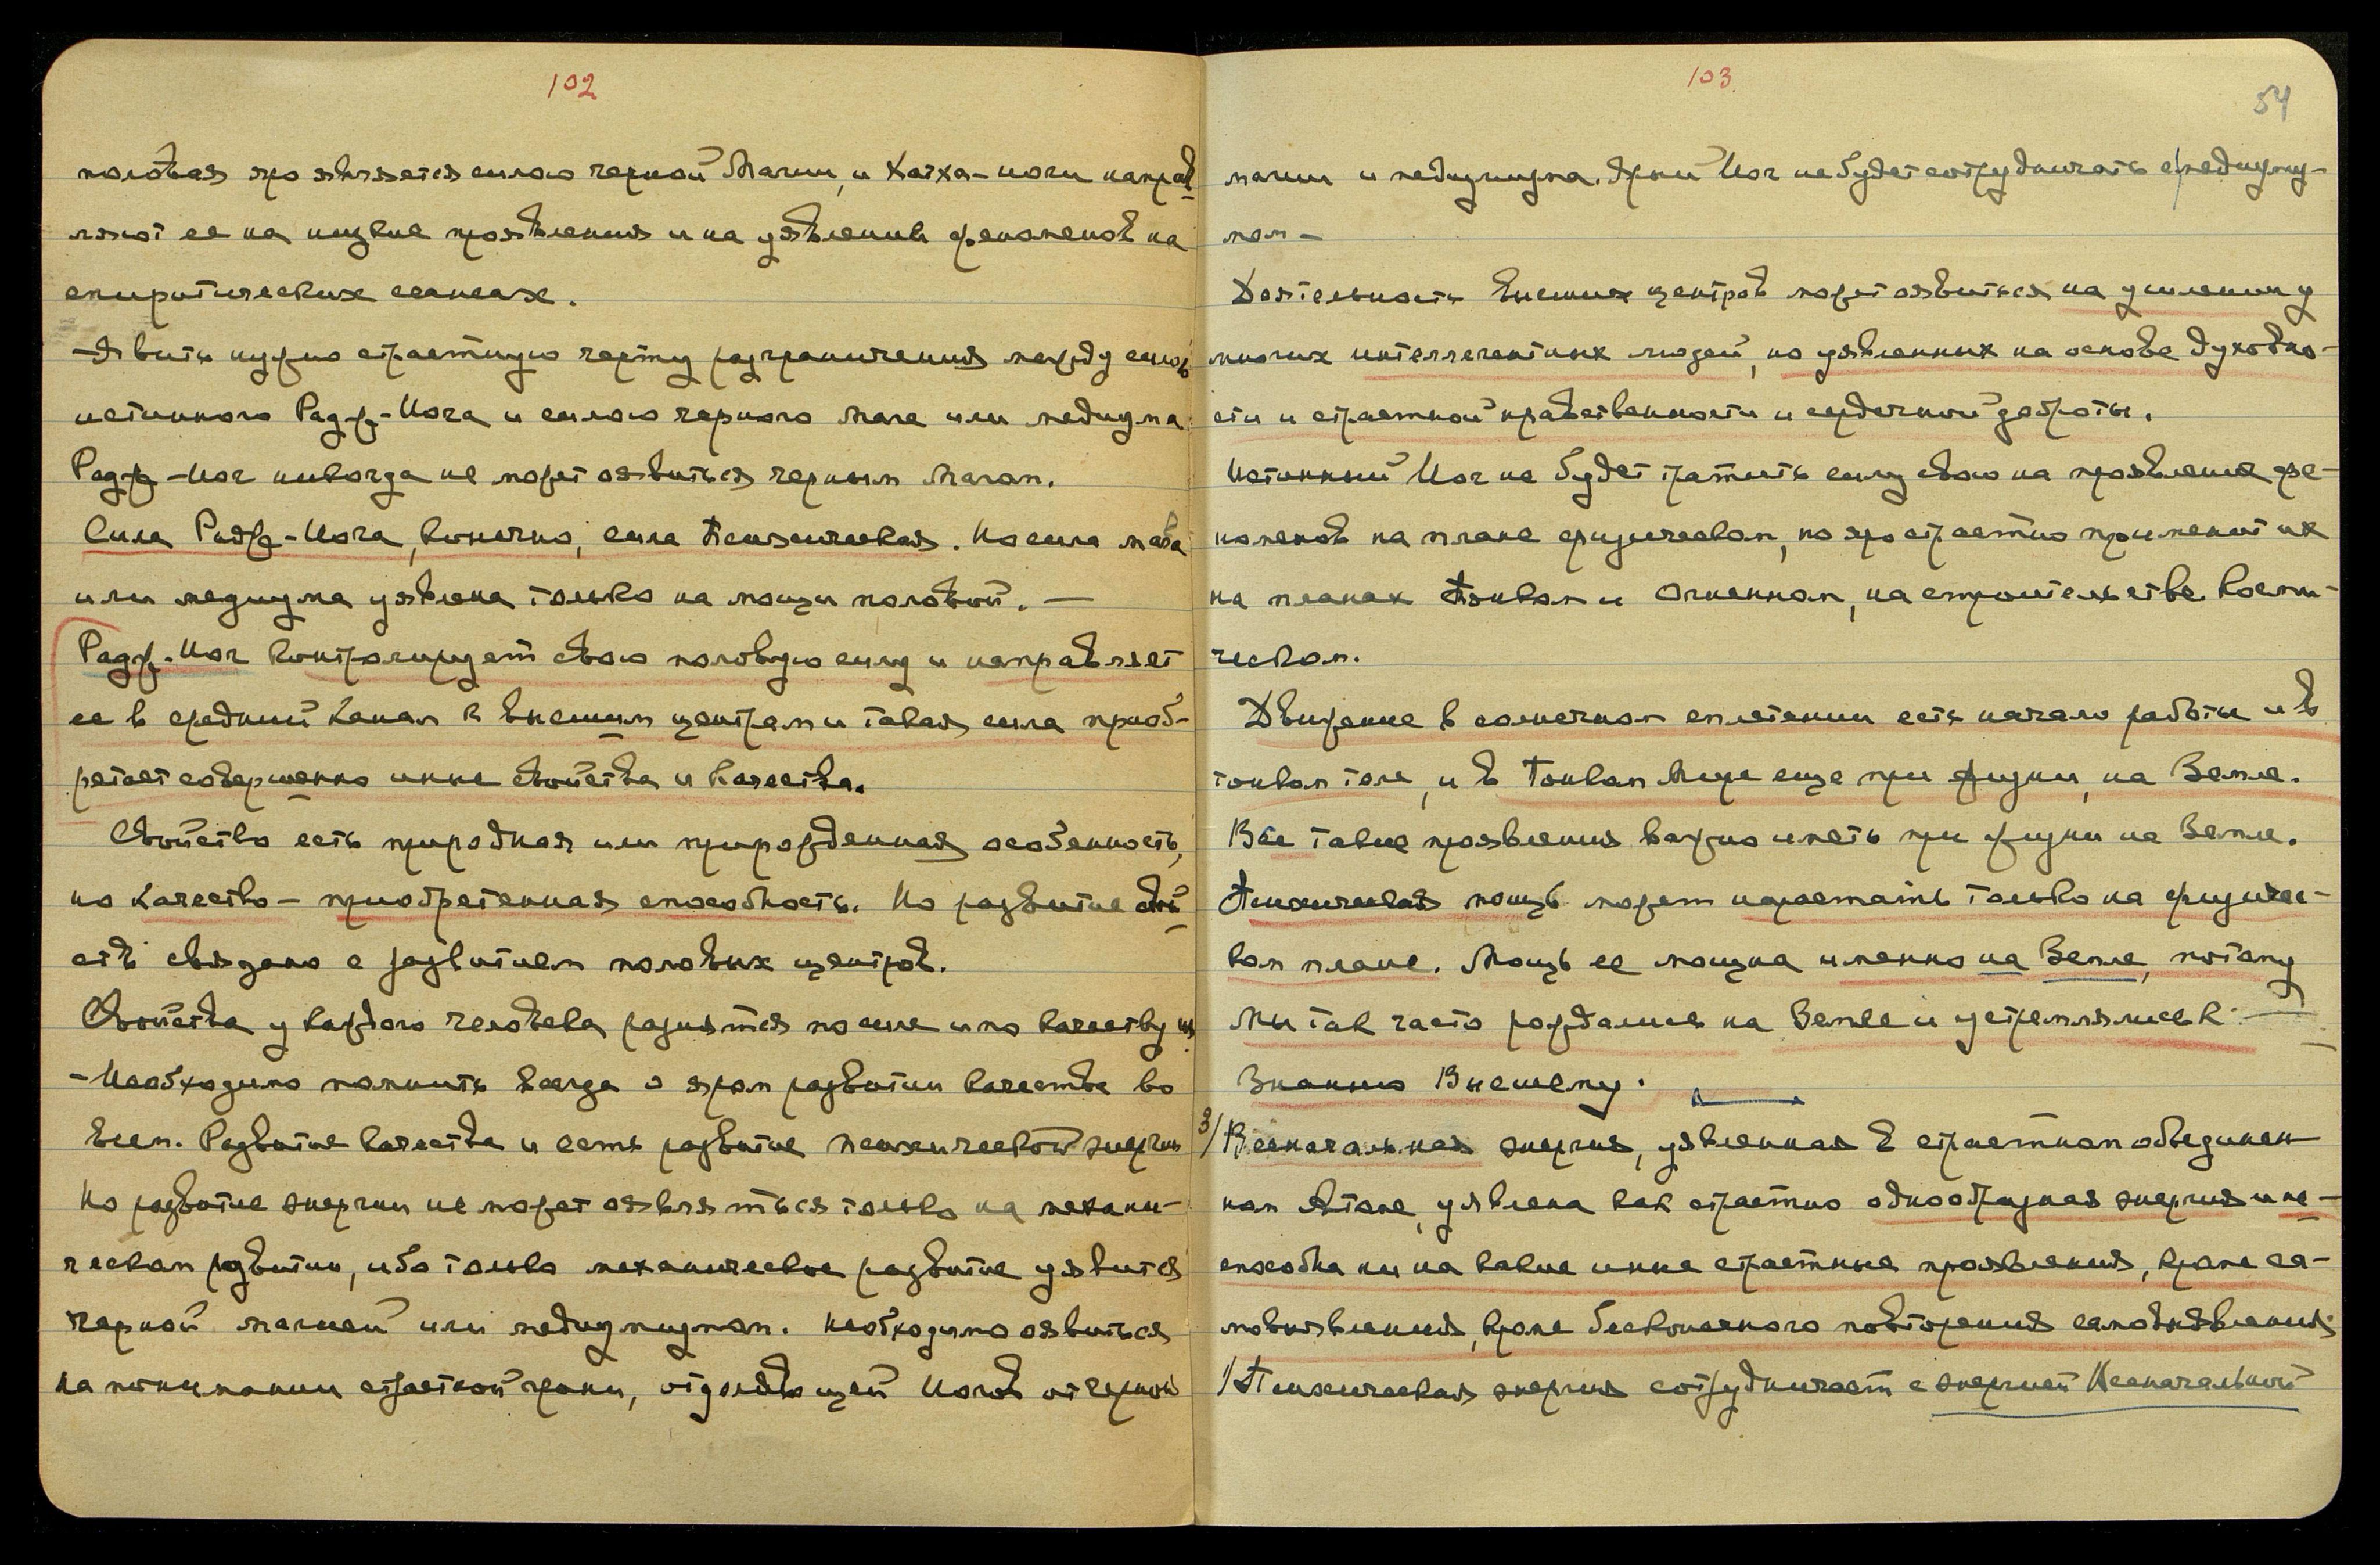 102
половая яро является силою черной Магии, и Хатха-йоги направ
ляют ее на низкие проявления и на уявления феноменов на
спиритических сеансах.
-Явить нужно страстную черту разграничения между силою
истинного Радж-Йога и силою черного мага или медиума.
Радж-Йог никогда не может оявиться черным Магом.
Сила Радж-Йога, конечно, сила Психическая. Но сила мага
или медиума уявлена только на мощи половой. —
Радж-Йог контролирует свою половую силу и направляет
ее в средний канал к высшим центрам и такая сила приоб-
ретает совершенно иные свойства и качества.
Свойство есть природная или прирожденная особенность,
но качество – приобретенная способность. Но развитие свой
ств связано с развитием половых центров.
Свойства у каждого человека разнятся по силе и по качеству их
-Необходимо помнить всегда о яром развитии качества во
всем. Развитие качества и есть развитие психической энергии
Но развитие энергии не может оявляться только на механи-
ческом развитии, ибо только механическое развитие уявится
черной магией или медиумизмом. Необходимо оявиться
на понимании страстной грани, отделяющей Йогов от черной
103
54
магии и медиумизма. Ярый Йог не будет сотрудничать с медиуму-
мом –
Деятельность Высших центров может оявиться на усилении у
многих интеллегентных людей, но уявленных на основе духовно-
сти и страстной нравственности и сердечной доброты.
Истинный Йог не будет тратить силу свою на проявление фе-
номенов на плане физическом, но яро страстно применит их
на планах Тонком и Огненном, на строительстве косми-
ческом.
Движение в солнечном сплетении есть начало работы и в
тонком теле, и в Тонком Мире еще при жизни, на Земле.
Все такие проявления важно иметь при жизни на Земле.
Психическая мощь может нарастать только на физичес-
ком плане. Мощь ее мощна именно на Земле, потому
мы так часто рождались на Земле и устремлялись к
Знанию Высшему.
3/ Всеначальная энергия, уявленная в страстном объединен-
ном Атоме, уявлена как страстно однообразная энергия и не-
способна ни на какие иные страстные проявления, кроме са-
мовыявления, кроме бесконечного повторения самовыявления
1/ Психическая энергия сотрудничает с энергией Всеначальной